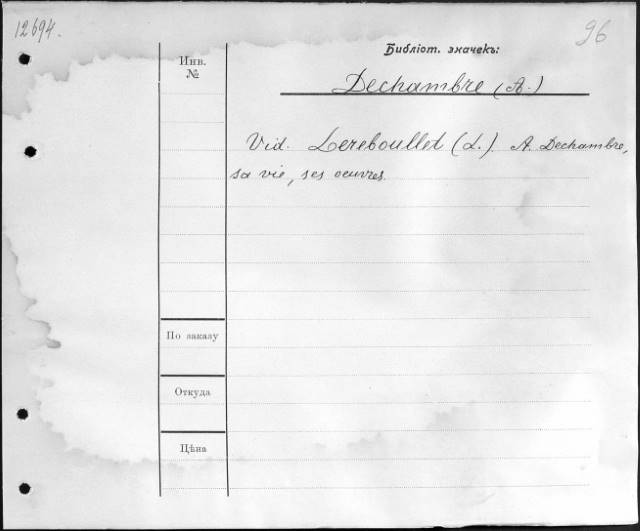 12694.
96
Библіот. значекъ:
Инв.
№
Dechambre (A.)
Vid. Lereboullet (L.). A. Dechambre,
sa vie, ses oeuvres.
По заказу
Откуда
Цѣна